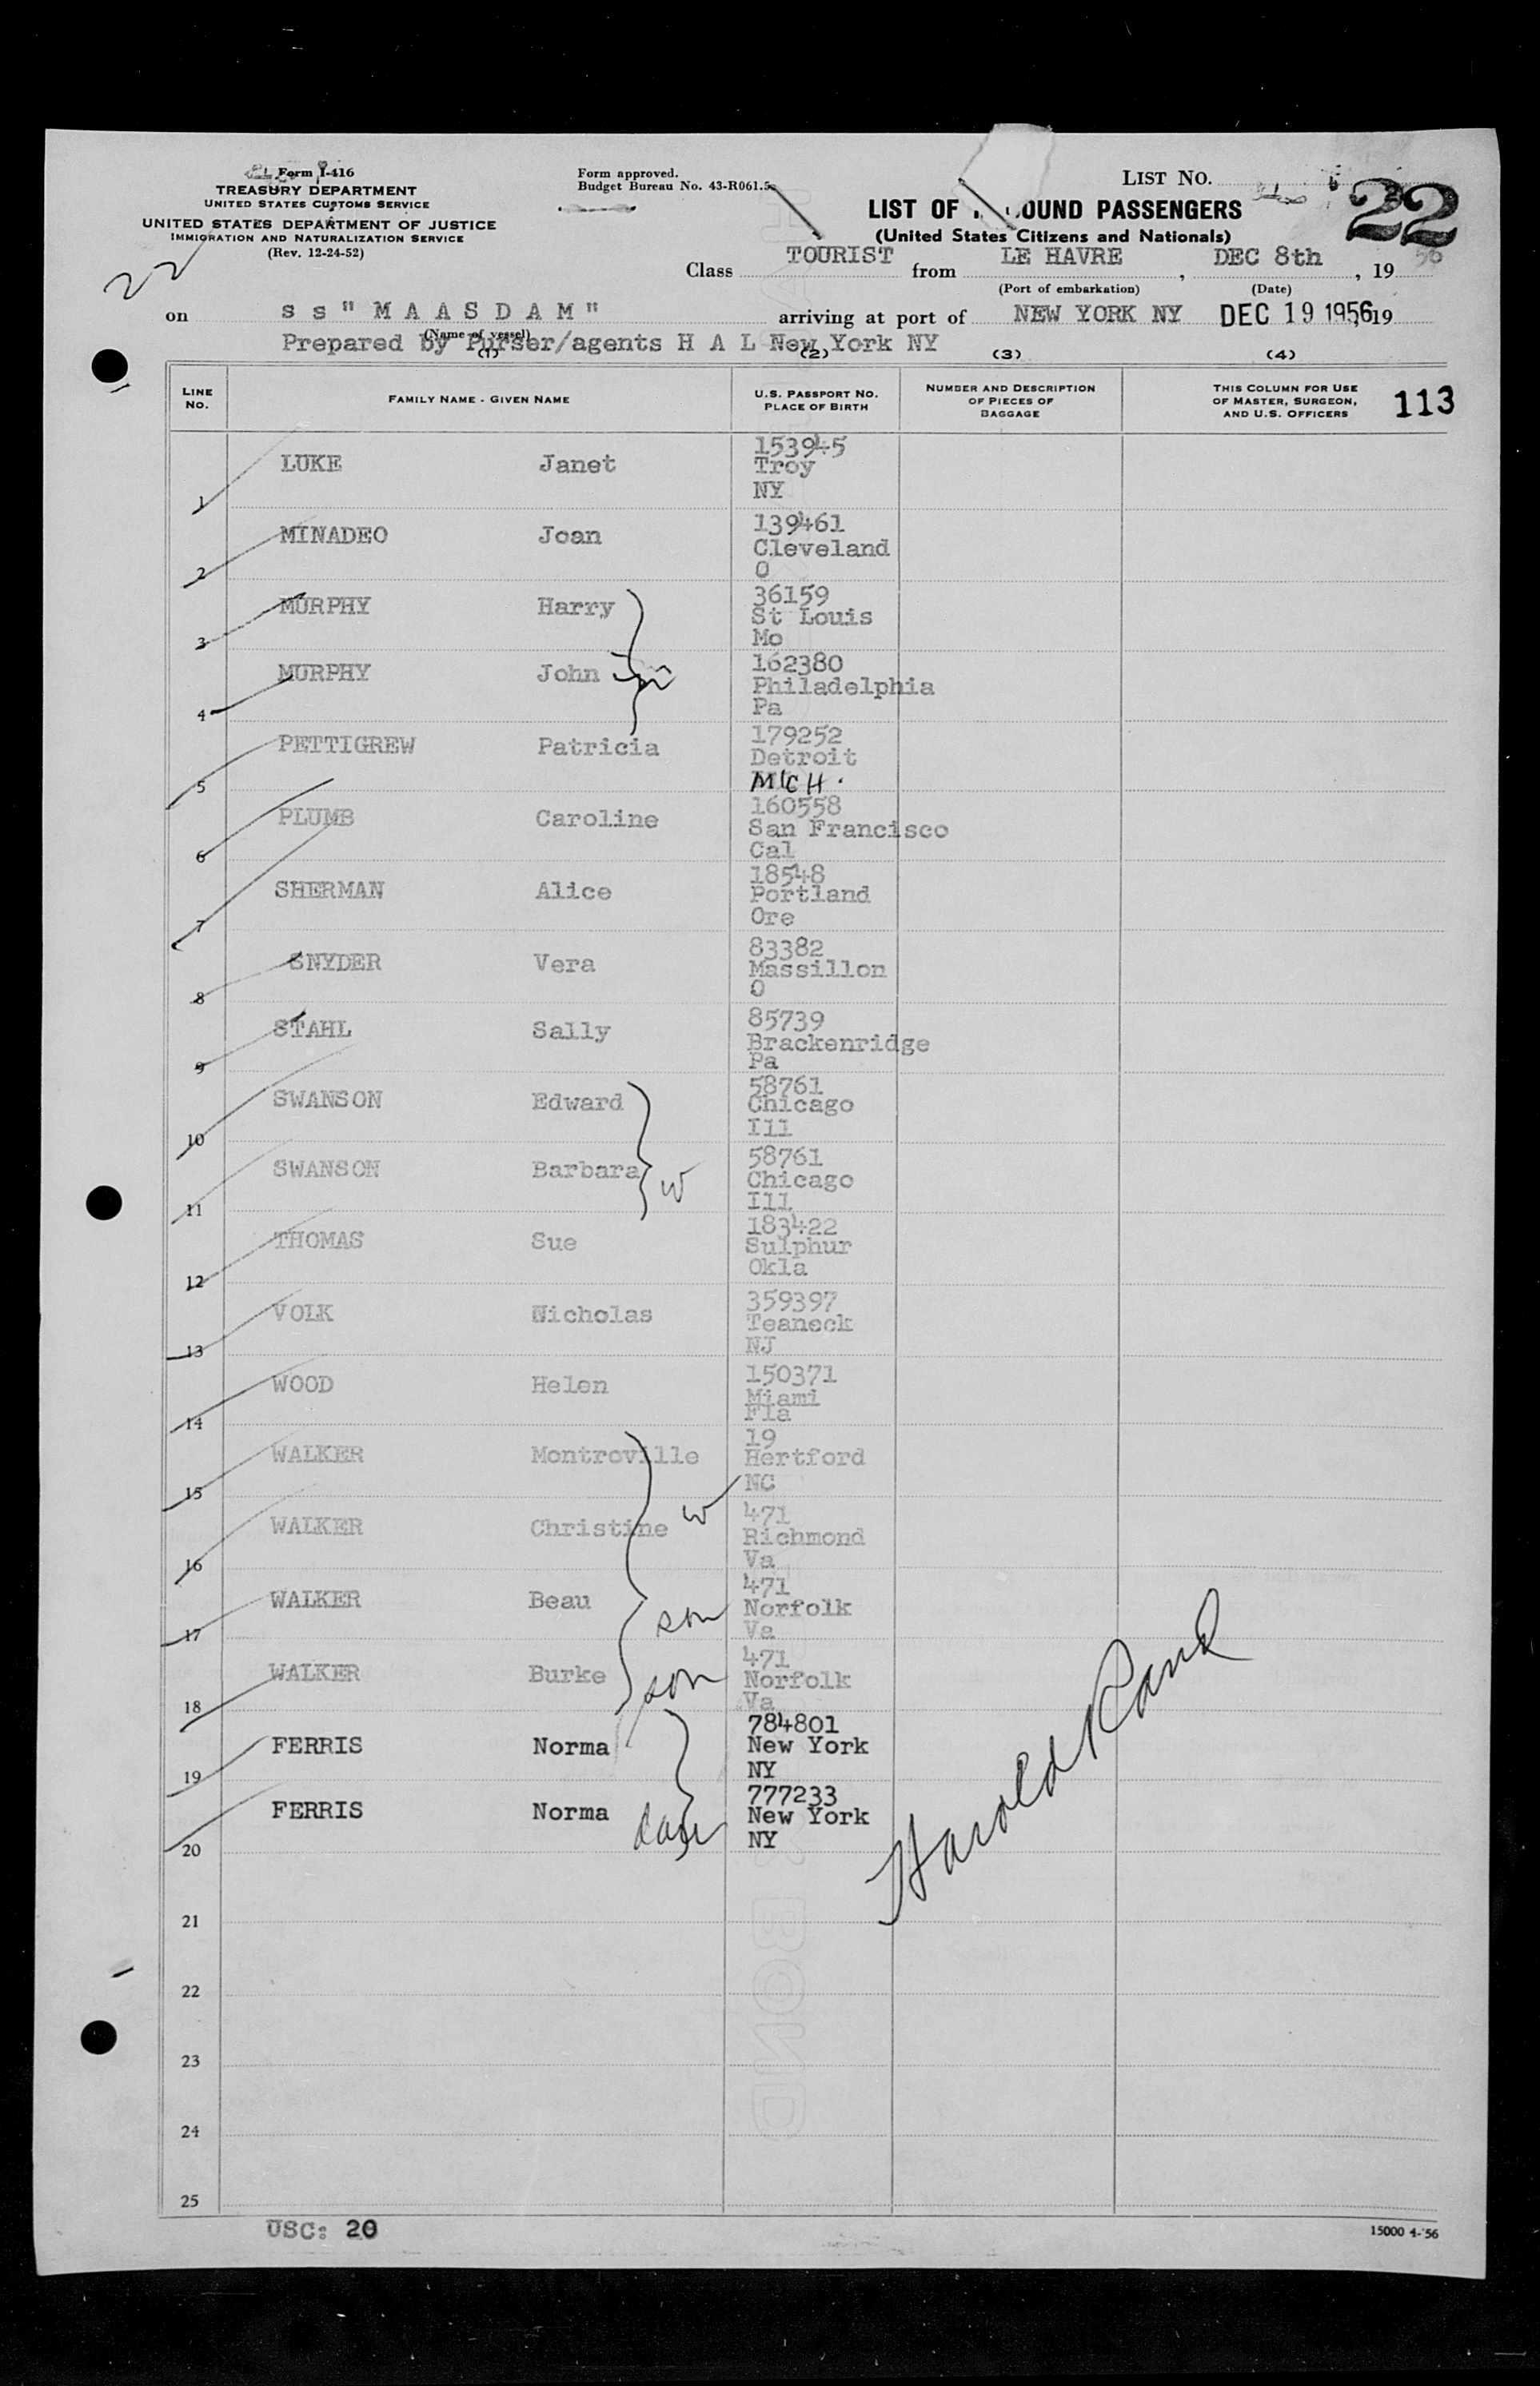 Form I-416
TREASURY DEPARTMENT
UNITED STATES CUSTOMS SERVICE
UNITED STATES DEPARTMENT OF JUSTICE
IMMIGRATION AND NATURALIZATION SERVICE
(Rev. 12-24-52)
22
Form approved.
Budget Bureau No. 43-R061.5
LIST NO.
22
LIST OF OUND PASSENGERS
(United States Citizens and Nationals)
Class TOURIST from LE HAVRE, DEC 8th, 19 56
(Port of embarkation) (Date)
on s s " M A A S D A M " arriving at port of NEW YORK NY DEC 19 1956, 19
(Name of vessel)
Prepared by Purser/agents H A L New York NY
(1) (2) (3) (4)
LINE NO. FAMILY NAME - GIVEN NAME U.S. PASSPORT NO. PLACE OF BIRTH NUMBER AND DESCRIPTION OF PIECES OF BAGGAGE THIS COLUMN FOR USE OF MASTER, SURGEON, AND U.S. OFFICERS 113
153945
LUKE Janet Troy
1 NY
139461
MINADEO Joan Cleveland
2 O
36159
MURPHY Harry St Louis
3 Mo
162380
MURPHY John Philadelphia
4 Pa
179252
PETTIGREW Patricia Detroit
5 MICH.
160558
PLUMB Caroline San Francisco
6 Cal
18548
SHERMAN Alice Portland
7 Ore
83382
SNYDER Vera Massillon
8 O
85739
STAHL Sally Brackenridge
9 Pa
58761
SWANSON Edward Chicago
10 Ill
58761
SWANSON Barbara w Chicago
11 Ill
183422
THOMAS Sue Sulphur
12 Okla
359397
VOLK Nicholas Teaneck
13 NJ
150371
WOOD Helen Miami
14 Fla
19
WALKER Montroville Hertford
15 NC
471
WALKER Christine w Richmond
16 Va
471
WALKER Beau son Norfolk
17 Va
471
WALKER Burke son Norfolk
18 Va
784801
FERRIS Norma New York
19 NY
777233
FERRIS Norma dau New York
20 NY
Harold Rand
21
22
23
24
25
USC: 20
15000 4-'56